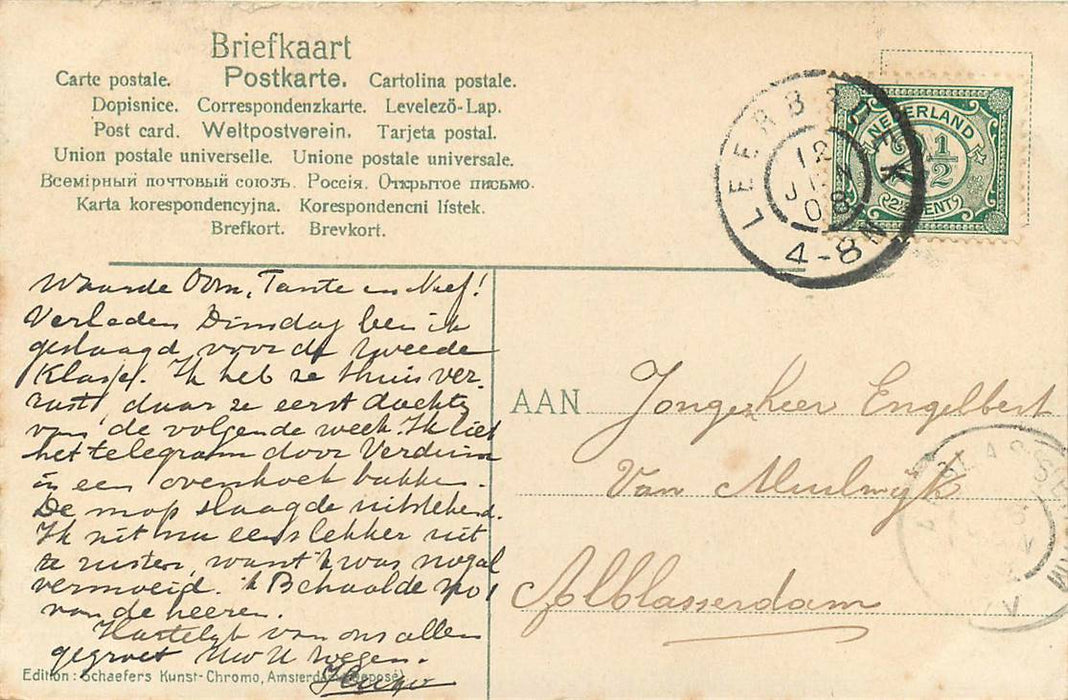 Briefkaart
Carte postale. Postkarte. Cartolina postale.
Dopisnice. Correspondenzkarte. Levelező-Lap.
Post card. Weltpostverein. Tarjeta postal.
Union postale universelle. Unione postale universale.
Всемірный почтовый союзъ. Россія. Открытое письмо.
Karta korespondencyjna. Korespondencni lístek.
Brefkort. Brevkort.
NEDERLAND
2½ CENT
LEERBROEK
12
08
4-8N
Waarde Oom, Tante en Neef!
Verleden Dinsdag ben ik
geslaagd voor de tweede
Klasse. Ik heb ze thuis ver-
rast, daar ze eerst dachten
van de volgende week. Ik liet
het telegram door Verduin
in een ovenkoek bakken.
De mop slaagde uitstekend.
Ik rust nu eens lekker uit
te rusten, want 'k was nogal
vermoeid. 'k Behaalde No 1
van de heeren.
Hartelijk van ons allen
gegroet Uw U
Hugo
AAN Jongeheer Engelbert
Van Muilwijk
Alblasserdam
ALBLASSERDAM
Edition: Schaefers Kunst-Chromo, Amsterdam (Deposé)